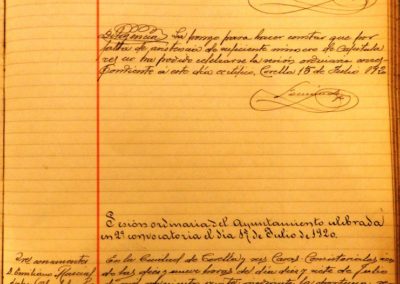 Diligencia. La pongo para hacer constar que por
falta de asistencia de suficiente número de Capitula
res no ha podido celebrarse la sesión ordinaria corres
pondiente a este día certifico, Corella 15 de Julio 1920
Sesión ordinaria del Ayuntamiento celebrada
en 2ª convocatoria el día 17 de Julio de 1920.
En la Ciudad de Corella y sus Casas Consistoriales a
de las diez y nueve horas del día diez y siete de Julio